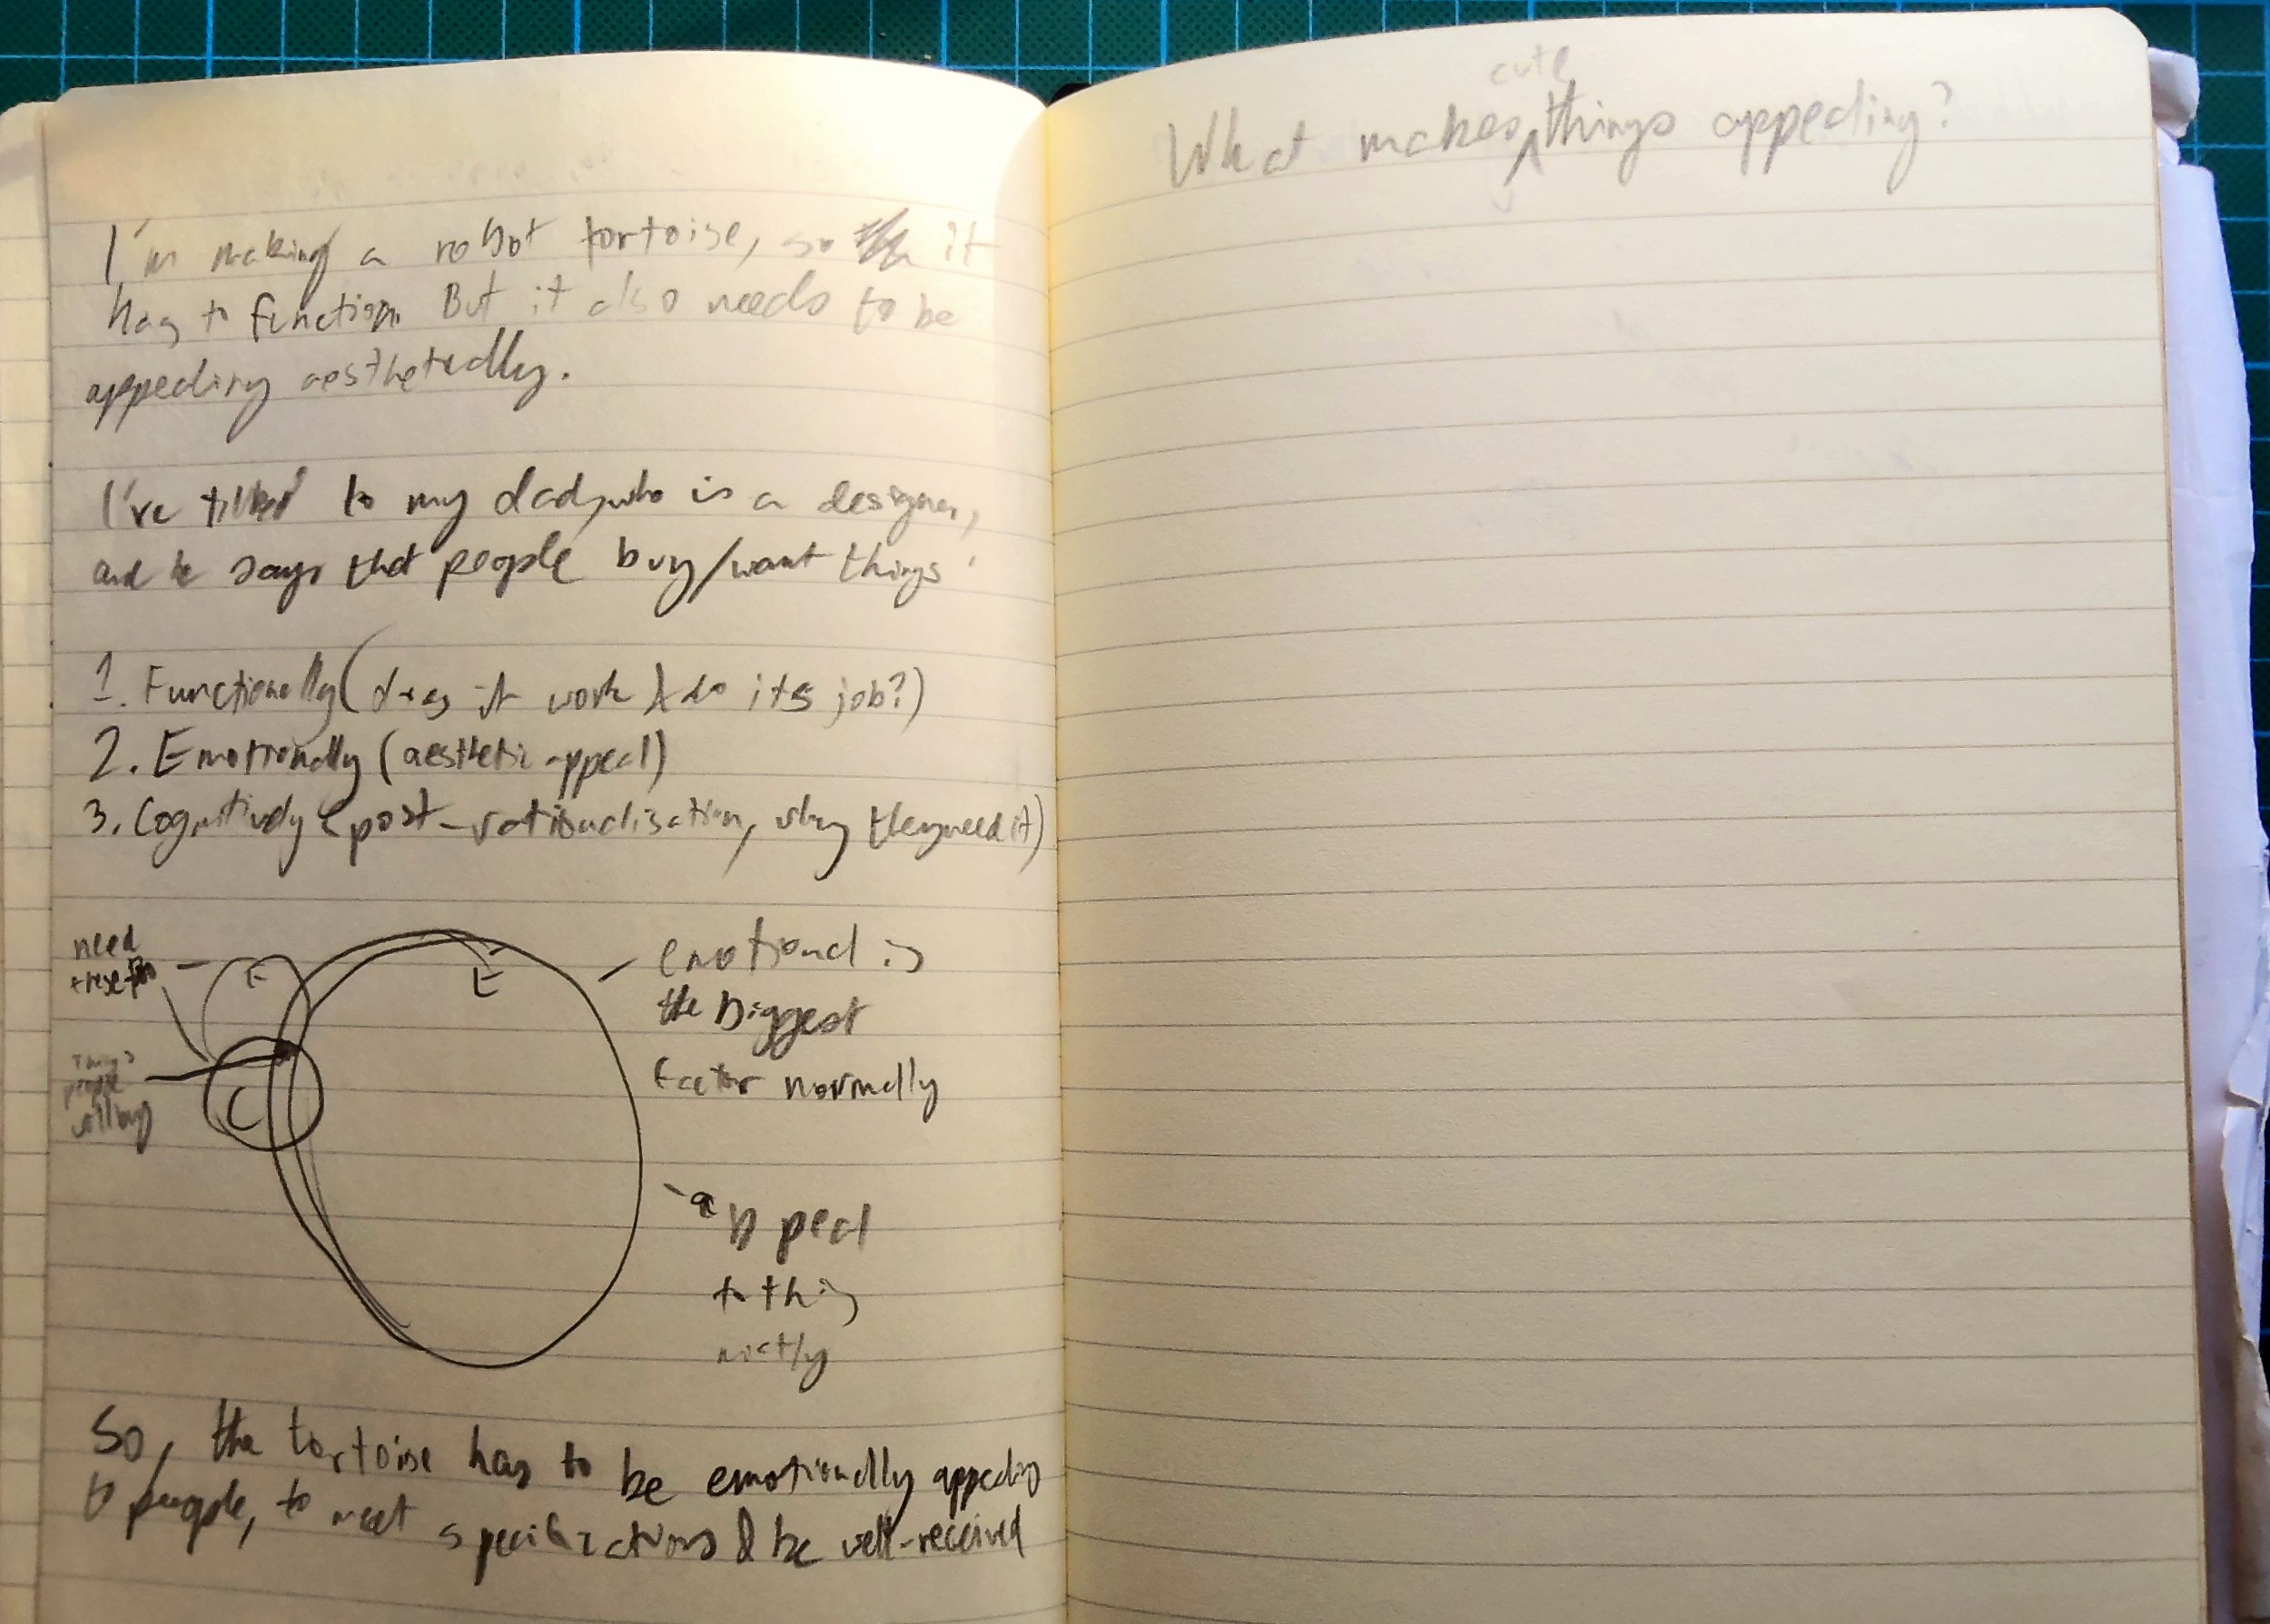 I'm making a robot tortoise, so it
has to function. But it also needs to be
appealing aesthetically.
I've talked to my dad, who is a designer,
and he says that people buy/want things:
1. Functionally (does it work & do its job?)
2. Emotionally (aesthetic appeal)
3. Cognitively (post-rationalisation, why they need it)
need
these too
F
E
C
things
people
will buy
emotional is
the biggest
factor normally
appeal
to this
mostly
So, the tortoise has to be emotionally appealing
to people, to meet specifications & be well-received
cute
What makes things appealing?